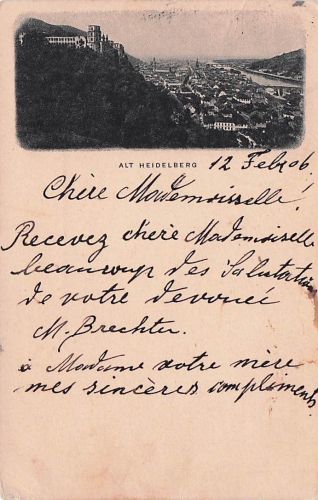 ALT HEIDELBERG
12 Feb. 06
Chère Mademoisselle!
Recevez chère Mademoiselle
beaucoup des Salutations
de votre devouéé
M. Brechter.
à Madame votre mère
mes sincères compliments